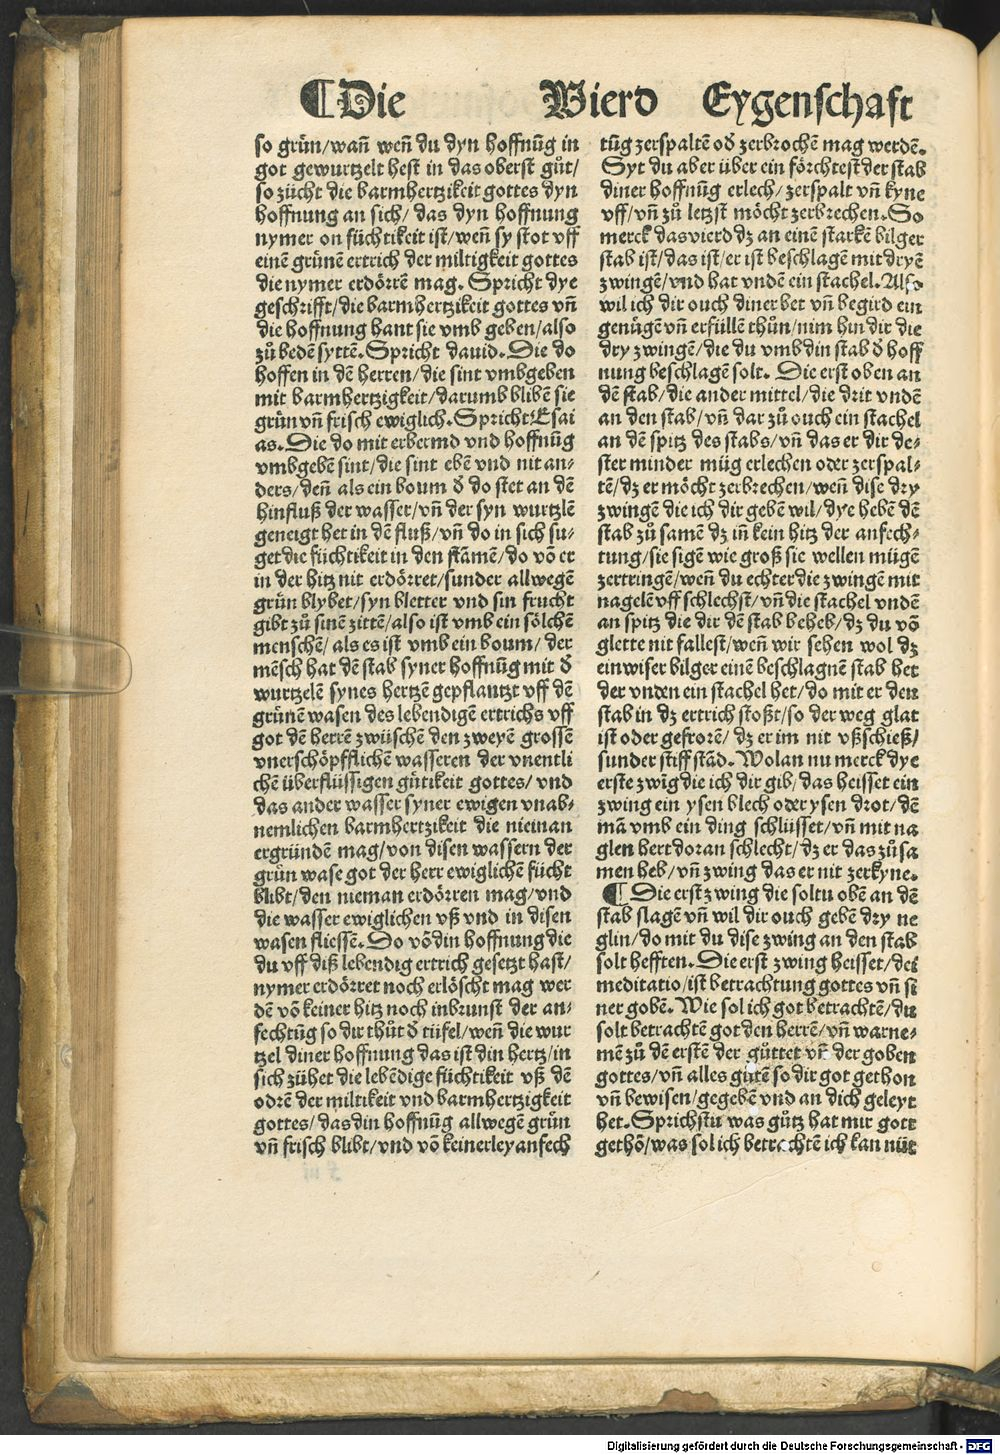 ¶Die Vierd Eygenschaft
so grün/wañ weñ du dyn hoffnũg in
got gewurtzelt hest in das oberst gůt/
so zücht die barmhertzikeit gottes dyn
hoffnung an sich/ das dyn hoffnung
nymer on füchtikeit ist/weñ sy stot vff
einẽ grünẽ ertrich der miltigkeit gottes
die nymer erdörrẽ mag. Spricht dye
geschrifft/die barmhertzikeit gottes vñ
die hoffnung hant sie vmb geben/also
zů bedẽ syttẽ. Spricht dauid. Die do
hoffen in dẽ herren/die sint vmbgeben
mit barmhertzigkeit/darumb blibẽ sie
grün vñ frisch ewiglich. Spricht Esai
as. Die do mit erbermd vnd hoffnũg
vmbgebẽ sint/die sint ebẽ vnd nit an⸗
ders/deñ als ein boum d̕ do stet an dẽ
hinfluß der wasser/vñ der syn wurtzlẽ
geneigt het in dẽ fluß/vñ do in sich su⸗
get die füchtikeit in den stãmẽ/do võ er
in der hitz nit erdörret/sunder allwegẽ
grün blybet/syn bletter vnd sin frucht
gibt zů sinẽ zittẽ/also ist vmb ein sölchẽ
menschẽ/ als es ist vmb ein boum/ der
mẽsch hat dẽ stab syner hoffnũg mit d̕
wurtzelẽ synes hertzẽ gepflantzt vff dẽ
grünẽ wasen des lebendigẽ ertrichs vff
got dẽ herrẽ zwüschẽ den zweyẽ grossẽ
vnerschöpfflichẽ wasseren der vnentli
chẽ überflüssigen gütikeit gottes/ vnd
das ander wasser syner ewigen vnab⸗
nemlichen barmhertzikeit die nieinan
ergründẽ mag/von disen wassern der
grün wase got der herr ewiglichẽ fücht
blibt/den nieman erdörren mag/vnd
die wasser ewiglichen vß vnd in disen
wasen fliessẽ. Do võ din hoffnung die
du vff diß lebendig ertrich gesetzt hast/
nymer erdörret noch erlöscht mag wer
dẽ võ keiner hitz noch inbrunst der an⸗
fechtũg so dir thůt d̕ tüfel/weñ die wur
tzel diner hoffnung das ist din hertz/in
sich zühet die lebẽdige füchtikeit vß dẽ
odrẽ der miltikeit vnd barmhertzigkeit
gottes/das din hoffnũg allwegẽ grün
vñ frisch blibt/vnd võ keinerley anfech
tũg zerspaltẽ od̕ zerbrochẽ mag werdẽ.
Syt du aber über ein förchtest der stab
diner hoffnũg erlech/ zerspalt vñ kyne
vff/vñ zů letzst möcht zerbrechen. So
merck das vierd dz an einẽ starkẽ bilger
stab ist/das ist/er ist beschlagẽ mit dryẽ
zwingẽ/vnd hat vndẽ ein stachel. Also
wil ich dir ouch diner bet vñ begird ein
genügẽ vñ erfüllẽ thůn/nim hin dir die
dry zwingẽ/die du vmb din stab d̕ hoff
nung beschlagẽ solt. Die erst oben an
dẽ stab/die ander mittel/die drit vndẽ
an den stab/vñ dar zů ouch ein stachel
an dẽ spitz des stabs/vñ das er dir de⸗
ster minder müg erlechen oder zerspal⸗
tẽ/dz er möcht zerbrechen/weñ dise dry
zwingẽ die ich dir gebẽ wil/dye hebẽ dẽ
stab zů samẽ dz in̄ kein hitz der anfech⸗
tung/sie sigẽ wie groß sie wellen mügẽ
zertringẽ/weñ du echter die zwingẽ mit
nagelẽ vff schlechst/vñ die stachel vndẽ
an spitz die dir dẽ stab beheb/dz du võ
glette nit fallest/weñ wir sehen wol dz
ein wiser bilger einẽ beschlagnẽ stab het
der vnden ein stachel het/do mit er den
stab in dz ertrich stoßt/so der weg glat
ist oder gefrorẽ/ dz er im nit vßschieß/
sunder stiff stãd. Wolan nu merck dye
erste zwĩg die ich dir gib/das heisset ein
zwing ein ysen blech oder ysen drot/dẽ
mã vmb ein ding schlüsset/vñ mit na
glen hert doran schlecht/dz er das zů sa
men heb/vñ zwing das er nit zerkyne.
¶ Die erst zwing die soltu obẽ an dẽ
stab slagẽ vñ wil dir ouch gebẽ dry ne
glin/do mit du dise zwing an den stab
solt hefften. Die erst zwing heisset/dei
meditatio/ist betrachtung gottes vñ si
ner gobẽ. Wie sol ich got betrachtẽ/du
solt betrachtẽ got den herrẽ/vñ warne⸗
mẽ zů dẽ erstẽ der gůttet vñ der goben
gottes/vñ alles gůtẽ so dir got gethon
vñ bewisen/gegebẽ vnd an dich geleyt
het. Sprichstu was gůtz hat mir gott
gethõ/was sol ich betrachtẽ ich kan nüt
Digitalisierung gefördert durch die Deutsche Forschungsgemeinschaft - DFG